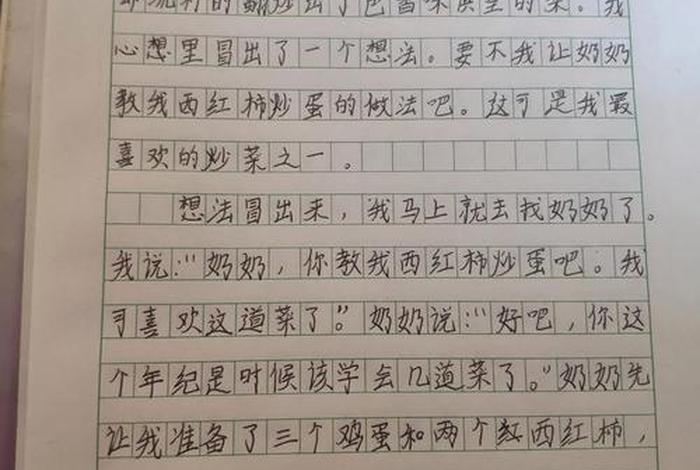 的翻炒出了色香味俱全的菜。我
心想里冒出了一个想法。要不我让奶奶
教我西红柿炒蛋的做法吧。这可是我最
喜欢的炒菜之一。
想法冒出来，我马上就去找奶奶了。
我说：“奶奶，你教我西红柿炒蛋吧。我
可喜欢这道菜了。”奶奶说：“好吧，你这
个年纪是时候该学会几道菜了。”奶奶先
让我准备了三个鸡蛋和两个红西红柿，